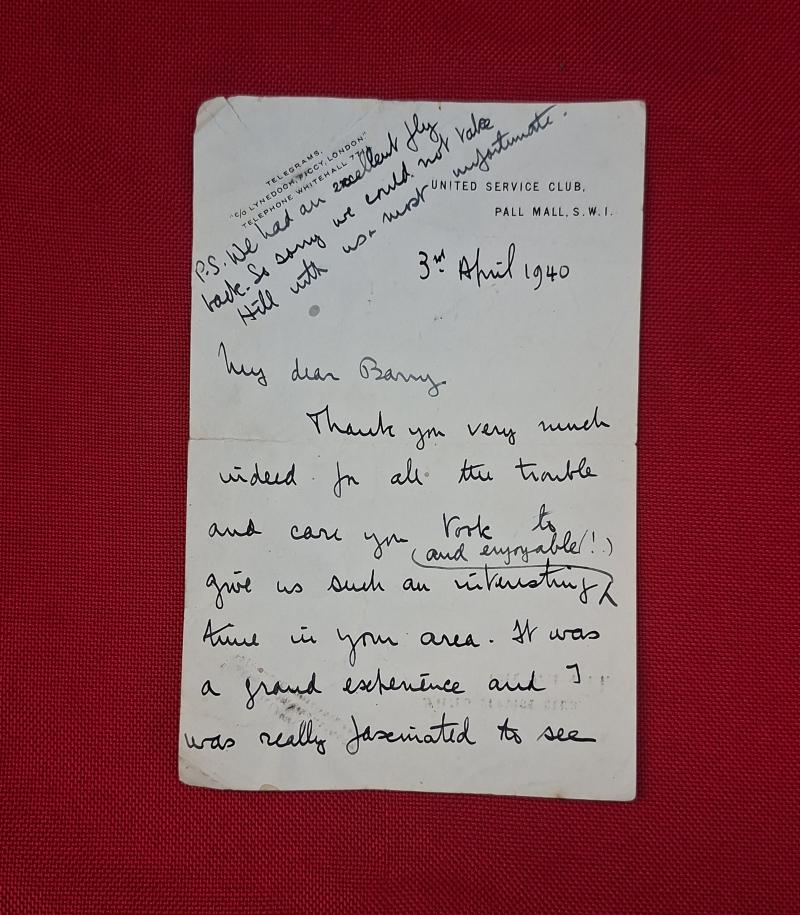 TELEGRAMS,
"C/O LYNEDOCH, PICCY, LONDON"
TELEPHONE WHITEHALL
UNITED SERVICE CLUB,
PALL MALL, S.W.1.
P.S. We had an excellent fly
back. So sorry we could not take
Hill with us & most unfortunate.
3rd April 1940
My dear Barry,
Thank you very much
indeed for all the trouble
and care you took to
(and enjoyable!)
give us such an interesting
time in your area. It was
a grand experience and I
was really fascinated to see